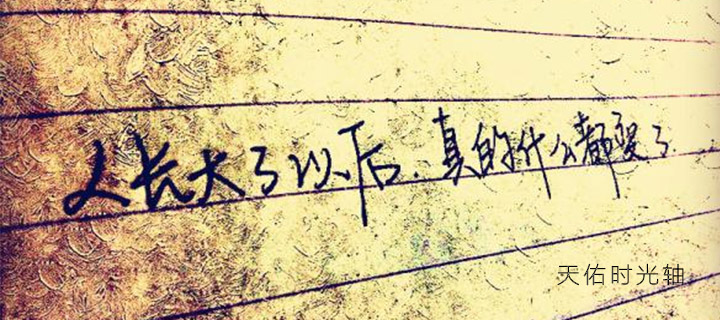 人长大了以后.真的什么都变了
天佑时光轴